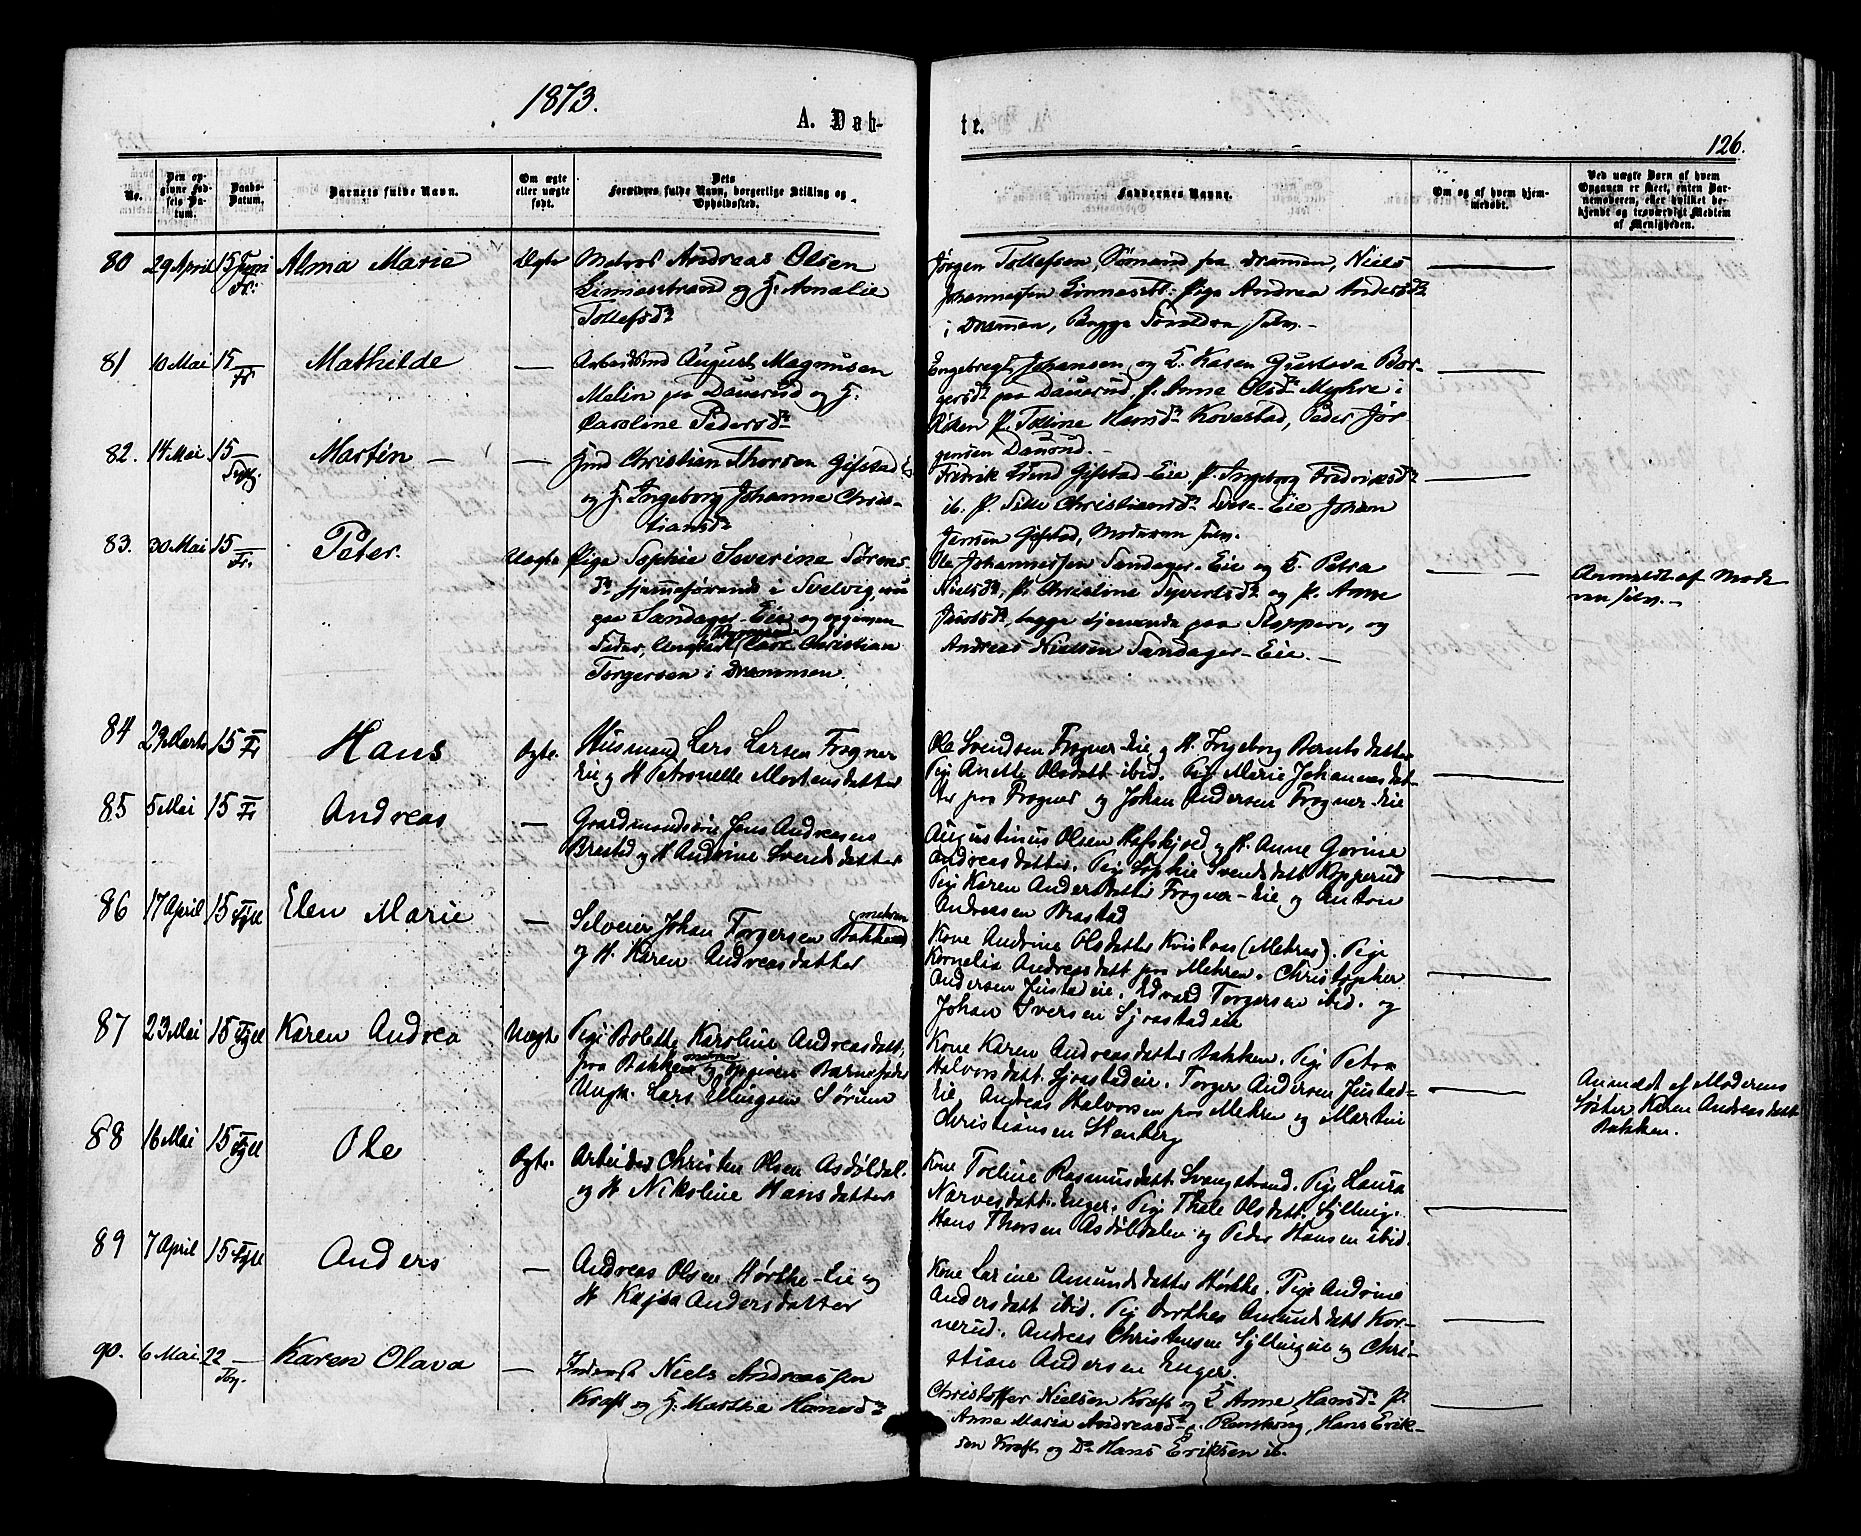 1873.
A. Døb-
te.
126.
No.
Den op-
givne Fød-
sels Da-
tum.
Daabs-
Datum.
Barnets fulde Navn.
Om ægte
eller uægte
født.
Dets
Forældres fulde Navn, borgerlige Stilling og
Opholdssted.
Faddernes Navne.
Om og af hvem hjem-
medøbt.
Ved uægte Barn af hvem
Opgaven er skeet, enten Bar-
nemoderen, eller hvilket be-
kjendt og troværdigt Medlem
af Menigheden.
80 29 April 15 Juni Fr: Alma Marie Ægte
Matros Andreas Olsen
Linnestrand og H. Amalie
Tollefsdr
Jörgen Tollefsen, Sömand fra Drammen, Niels
Johannessen Linnestr: Pige Andrea Andersdr
i Drammen, Begge Forældre selv.
81 10 Mai 15 Fr. Mathilde —
Arbeidsmd August Magnusen
Malin paa Dauerud og H.
Caroline Pedersdr
Engebregt Johansen og K. Karen Gustava Bor-
gersdr paa Dauerud, P. Anne Olsdr Myhre i
Röken P. Tolline Hansdr Kovestad, Peder Jör
gensen Dauerud.
82. 14 Mai. 15 Sylg. Martin — —
Gmd Christian Thorsen Gifstad E.
og H. Ingeborg Johanne Chris-
tiansdr
Fredrik Gifstad-Eie, P. Ingeborg Fredriksdr
ib. P. Christiansdr Eie Johan
Jensen Gifstad, Moderen selv.
83. 30 Mai 15 Fr. Peter. Uægte
Pige Sophie Severine Sörens-
dr hjemmehörende i Svelvig, nu
paa Sandager-Eie og opgiven
Fader, Ungkarl Carl Christian
Torgersen i Drammen.
Ole Johannessen Sandager-Eie og K. Petra
Nielsdr, P. Christine Syvertsdr og P. Anne
Jacobsdr, begge tjenende paa Stoppen, og
Andreas Nielsen Sandager-Eie. —
Anmeldt af Mode
ren selv. —
84 29 Marts 15 Fr Hans Ægte.
Husmand Lars Larsen Frogner
Eie og H Petronelle Mortensdatter
Ole Svendsen Frogner-Eie og H. Ingeborg Berntsdatter
Pige Anette Olsdatt ibid. Pige Marie Johannesdat-
ter paa Frogner og Johan Andersen Frogner-Eie
85 5 Mai 15 Fr Andreas —
Gaardmandssön Jens Andreasen
Brastad og H Andrine Svendsdatter
Augustinus Olsen Hafskjold og H. Anne Gorine
Andreasdatter. Pige Sophie Svendsdatt Opperud
Pige Karen Andersdatt Frogner-Eie og Anton
Andreasen Brastad
86 17 April 15 Syll Elen Marie —
Selveier Johan Torgersen Bakken mehren
og H. Karen Andreasdatter
Kone Andrine Olsdatter Kvislaas (Mehren). Pige
Kornelia Andreasdatt paa Mehren. Christopher
Andersen Justadeie. Edvard Torgersen ibid. og
Johan Iversen Sjrastadeie
87 23 Mai 15 Syll Karen Andrea Uægte
Pige Bolette Karoline Andreasdatt,
fra Bakken mehren og opgiven Barnefader
Ungk. Lars Ellingsen Sørum
Kone Karen Andreasdatter Bakken. Pige Petra
Halvorsdatt Sjrastadeie. Torger Andersen Justad-
Eie, Andreas Halvorsen paa Mehren og Martin
Christiansen Stenberg
Anmeldt af Moderens
Søster Karen Andreasdatt
Bakken.
88 16 Mai 15 Syll Ole Ægte.
Arbeider Christen Olsen Asdöldal.
og H Nikoline Hansdatter
Kone Torline Rasmusdatt. Svangstrand. Pige Laura
Narvesdatt. Enger. Pige Thale Olsdatt. Sylling.
Hans Thorsen Asdöldalen og Peder Hansen ibid.
89 7 April 15 Syll Anders —
Andreas Olsen Hørthe-Eie og
H Kajsa Andersdatter
Kone Larine Amundsdatter Hørthe. Pige Andrine
Andersdatt ibid. Pige Dorthea Amundsdatt Kor-
nerud. Andreas Christensen Syllingeie og Chri-
stian Andersen Enger.
90. 6 Mai 22 Karen Olava —
Niels Andreassen
Kraft og H. Marthe Hansdr
Christoffer Nielsen Kraft og K Anne Hansdr P.
Anne Maria Andreasdr Hans Erik-
sen Kraft og Do Hans Eriksen ib.